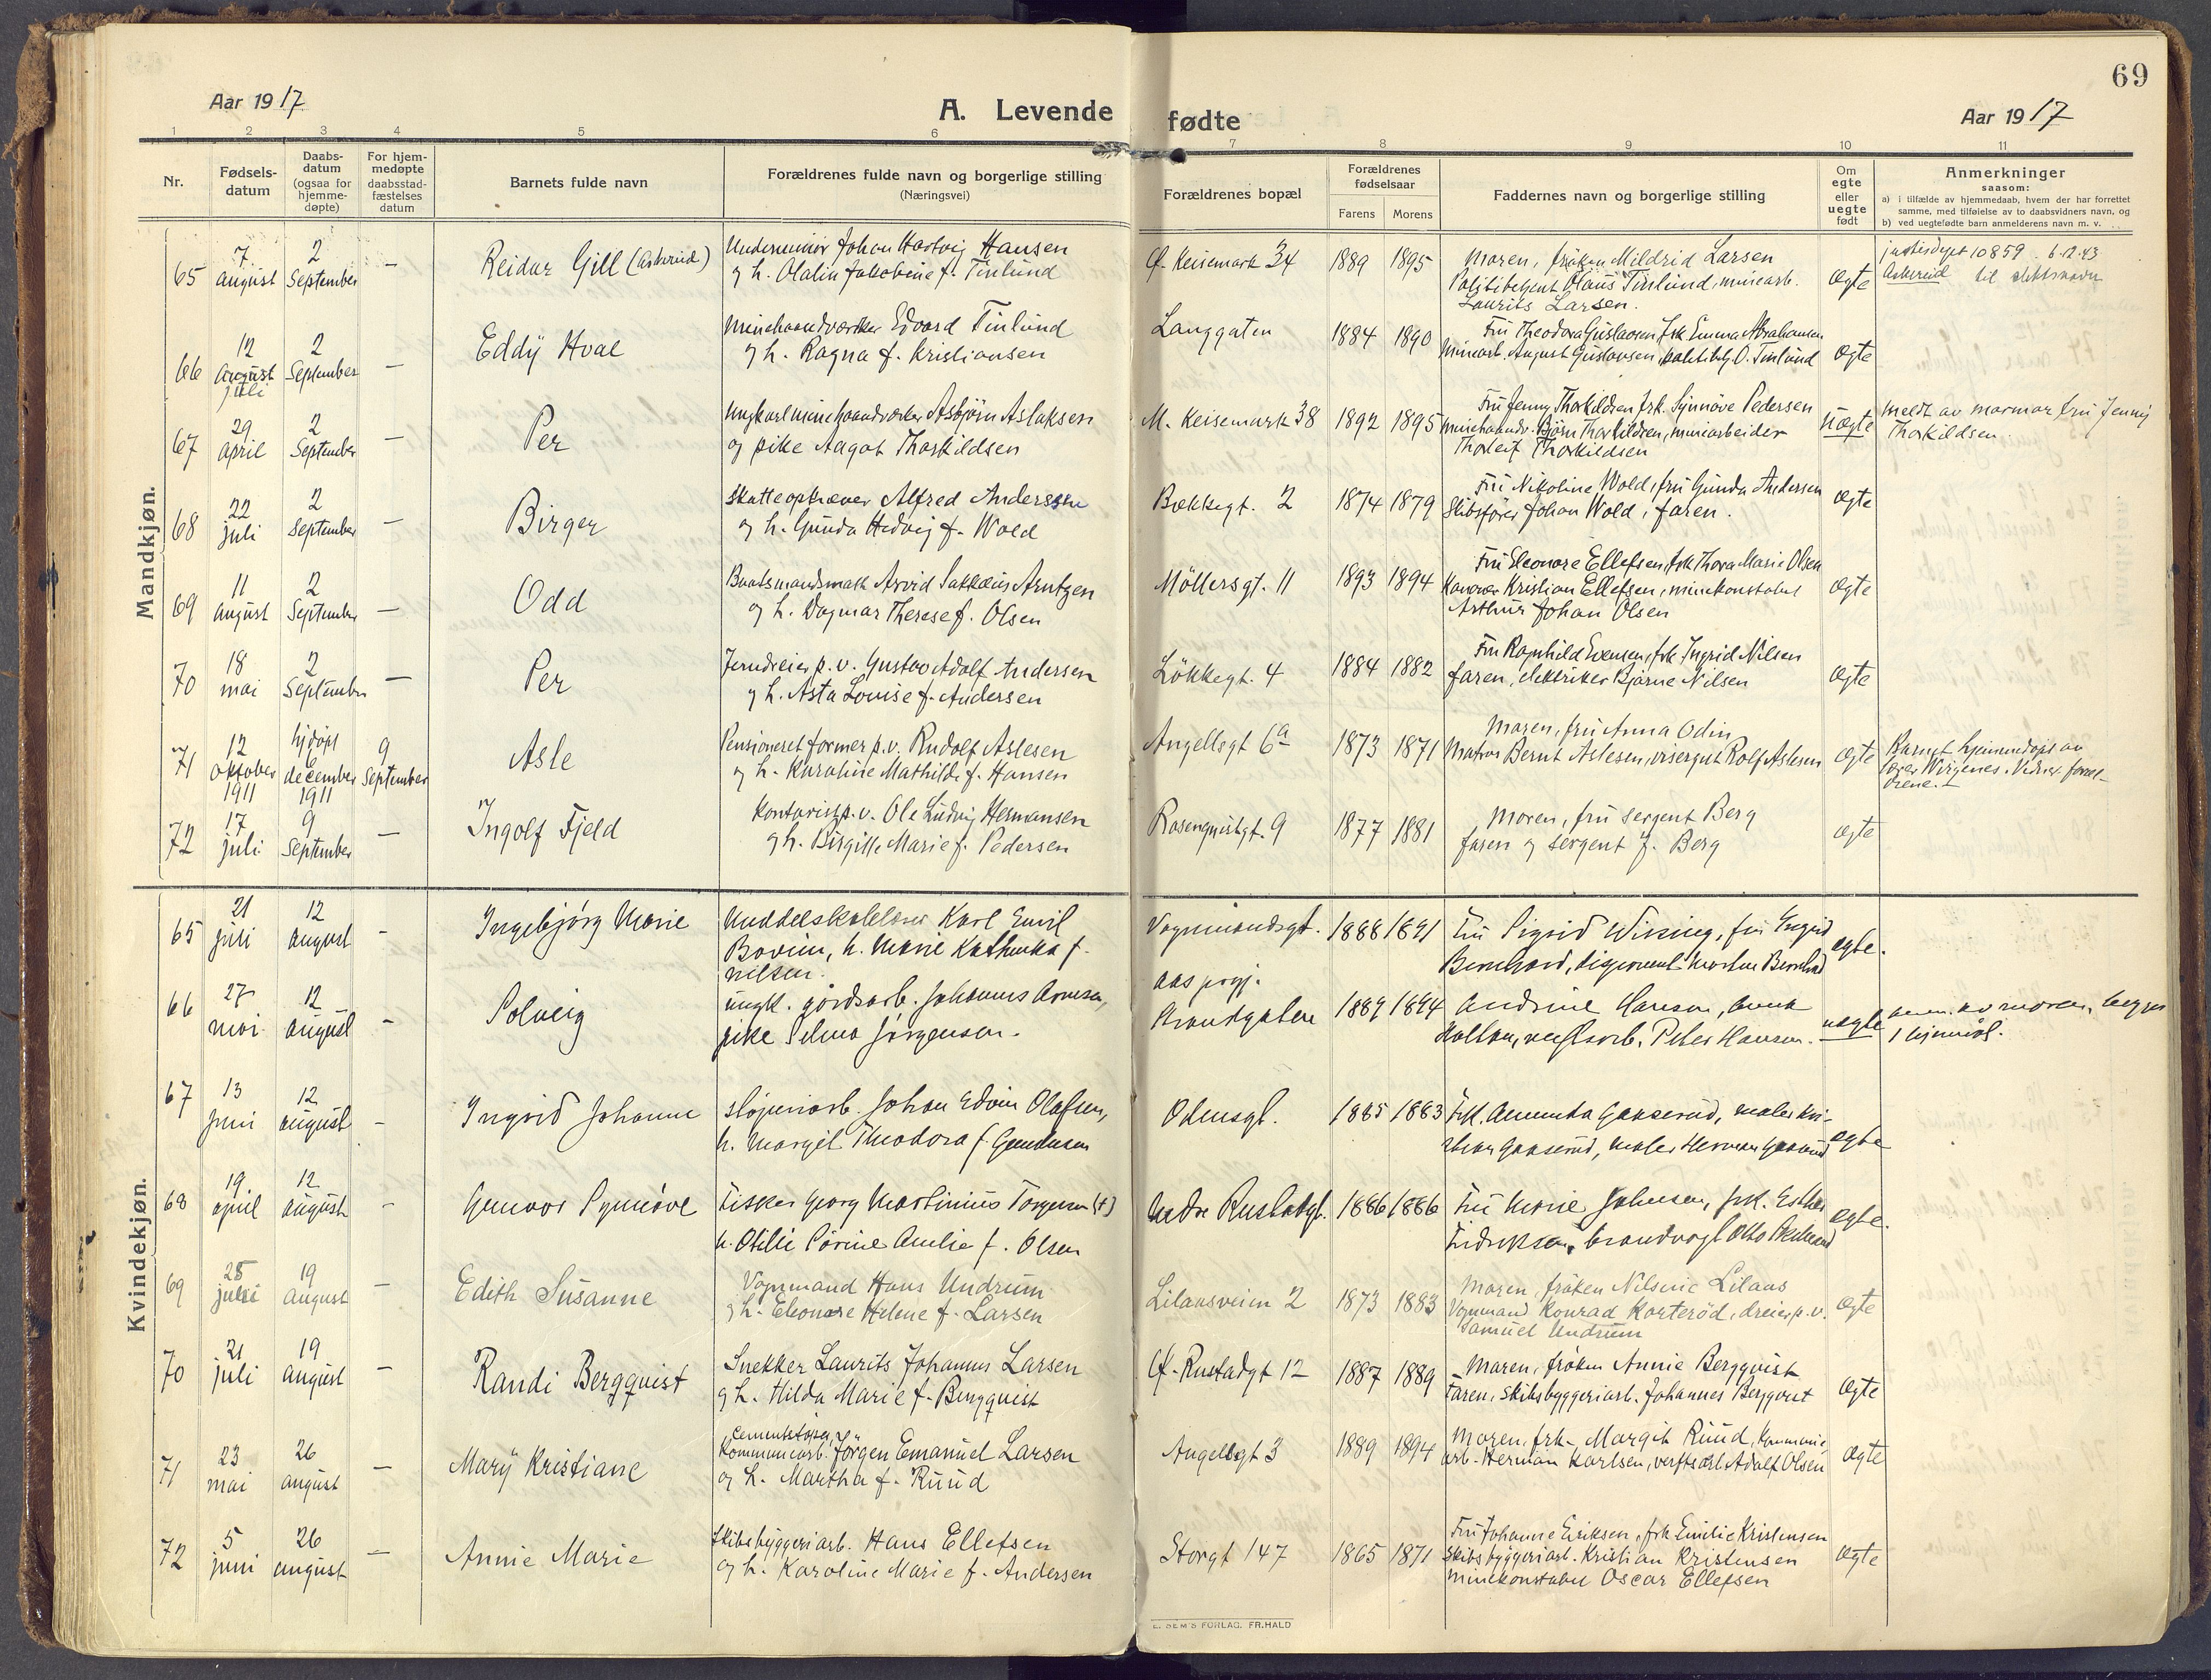 69
Aar 1917
A. Levende
fødte
Aar 1917
1 2 3 4 5 6 7 8 9 10 11
Nr.
Fødsels-
datum
Daabs-
datum
(ogsaa for
hjemme-
døpte)
For hjem-
medøpte
daabsstad-
fæstelses
datum
Barnets fulde navn
Forældrenes fulde navn og borgerlige stilling
(Næringsvei)
Forældrenes bopæl
Forældrenes
fødselsaar
Farens Morens
Faddernes navn og borgerlige stilling
Om
egte
eller
uegte
født
Anmerkninger
saasom:
a) i tilfælde av hjemmedaab, hvem der har forrettet
samme, med tilføielse av to daabsvidners navn, og
b) ved uegtefødte barn anmelderens navn m. v.
Mandkjøn.
65 7 august 2 September — Reidar Gill
Johan Hartvig Hansen
og h. Olalia Jakobine f. Tinlund
Keisemark 34 1889 1895
Moren, frøken Mildrid Larsen
Politibetjent Olaus Tinlund, minearb.
Laurits Larsen.
Ægte
10859 6.12.43
til slektsnavn
66 12 august juli 2 September — Eddÿ Hval
Minehaandverker Edvard Tinlund
og h. Ragna f. Kristiansen
Langgaten 1884 1890
Fru Theodora Gustavsen frk Emma Abrahamsen
Minearb. August Gustavsen, politibtj. O. Tinlund
Ægte
67 29 april 2 September — Per
Ungkarl minehaandverker Asbjørn Aslaksen
og pike Aagot Thorkildsen
M. Keisemark 38 1892 1895
Fru Jenny Thorkildsen frk. Synnøve Pedersen
minehaandv. Bjørn Thorkildsen, minearbeider
Thorleif Thorkildsen
Uægte
Meldt av mormor fru Jenny
Thorkildsen.
68 22 juli 2 September — Birger
Skatteopkræver Alfred Anderssen
og h. Gunda Hedvig f. Wold
Bækkegt. 2 1874 1879
Fru Nikoline Wold, fru Gunda Andersen
Skibsfører Johan Wold, faren.
Ægte
69 11 august 2 September — Odd
Baatsmandsmath Arvid Arntzen
og h. Dagmar Therese f. Olsen
Møllersgt. 11 1893 1894
Fru Eleonore Ellefsen, frk Thora Marie Olsen
Kristian Ellefsen, minekonstabel
Arthur Johan Olsen
Ægte
70 18 mai 2 September — Per
Jerndreier p.v. Gustav Adolf Andersen
og h. Asta Lovise f. Andersen
Løkkegt. 4 1884 1882
Fru Ragnhild Evensen, frk Ingrid Nilsen
faren, elektriker Bjarne Nilsen
Ægte
71 12 oktober 1911 hjdøpt 6 december 1911 9 September Asle
Pensioneret former p.v. Rudolf Aslesen
og h. Karoline Mathilde f. Hansen
Angellsgt 6a 1873 1871
Moren, fru Anna Odin
Matros Bernt Aslesen, visergut Rolf Aslesen
Ægte
Barnet hjemmedøpt av
72 17 juli 9 September — Ingolf Fjeld
Kontorist p.v. Ole Ludvig Hermansen
og h. Birgitte Marie f. Pedersen
Rosenqvistgt. 9 1877 1881
Moren, fru sergent Berg
faren og sergent J. Berg
Ægte
Kvindekjøn.
65 21 juli 12 august - Ingebjørg Marie
Karl Emil
Bovim, h. Marie Kathinka f.
Nilsen.
Vognmandsgt. 1888 1891
Fru Sigrid Wiksing, fru Ingrid
Bernhard, Morten Bernhard
egte.
66 27 mai 12 august - Solveig
ungk. gårdsarb. Johannes Arnesen,
pike Selma Jørgensen.
Aas prgj.
Strandgaten 1889 1894
Andrine Hansen, Anna
Holtan, verftsarb. Peter Hansen.
uegte
anm. av moren, begges
1
67 13 juni 12 august - Ingrid Johanne
sløperiarb. Johan Edvin Olafsen,
h. Margit Theodora f. Gundersen
Odinsgt. 1885 1883
Frk. Amunda Gaaserud, maler Kri-
stian Gaaserud, maler Herman Gaaserud
egte
68 19 april 12 august - Gunvor Synnöve
Fisker Georg Martinius Torgersen (†)
h. Otilie Sørine Amelie f. Olsen
Nedre Rustadgt. 1886 1886
Fru Marie Johnsen, frk. Esther
Fredriksen, brandvagt Otto
egte.
69 28 juli 19 august — Edith Susanne
Vognmand Hans Undrum
og h. Eleonore Helene f. Larsen
Lilaasveien 2 1873 1883
Moren, frøken Nilsine Lilaas
Vognmand Konrad Korterød, dreier p.v.
Samuel Undrum
Ægte
70 21 juli 19 august — Randi Bergquist
Snekker Laurits Johannes Larsen
og h. Hilda Marie f. Bergquist
Ø. Rustadgt 12 1887 1889
Moren, frøken Annie Bergqvist
Faren, skibsbyggeriarb. Johannes Bergqvist
Ægte
71 23 mai 26 august — Marÿ Kristiane
Cementstøper,
Kommunearb. Jörgen Emanuel Larsen
og h. Martha f. Ruud
Angellsgt 3 1889 1894
Moren, frk. Margit Ruud, kommune-
arb. Herman Karlsen, verftsarb. Adolf Olsen
Ægte
72 5 juni 26 august — Annie Marie
Skibsbyggeriarb. Hans Ellefsen
og h. Karoline Marie f. Andersen
Storgt 147 1865 1871
Fru Johanne Eriksen, frk Emilie Kristensen
Skibsbyggeriarb. Kristian Kristensen
Minekonstabel Oscar Ellefsen
Ægte
E. SEM'S FORLAG. FR.HALD